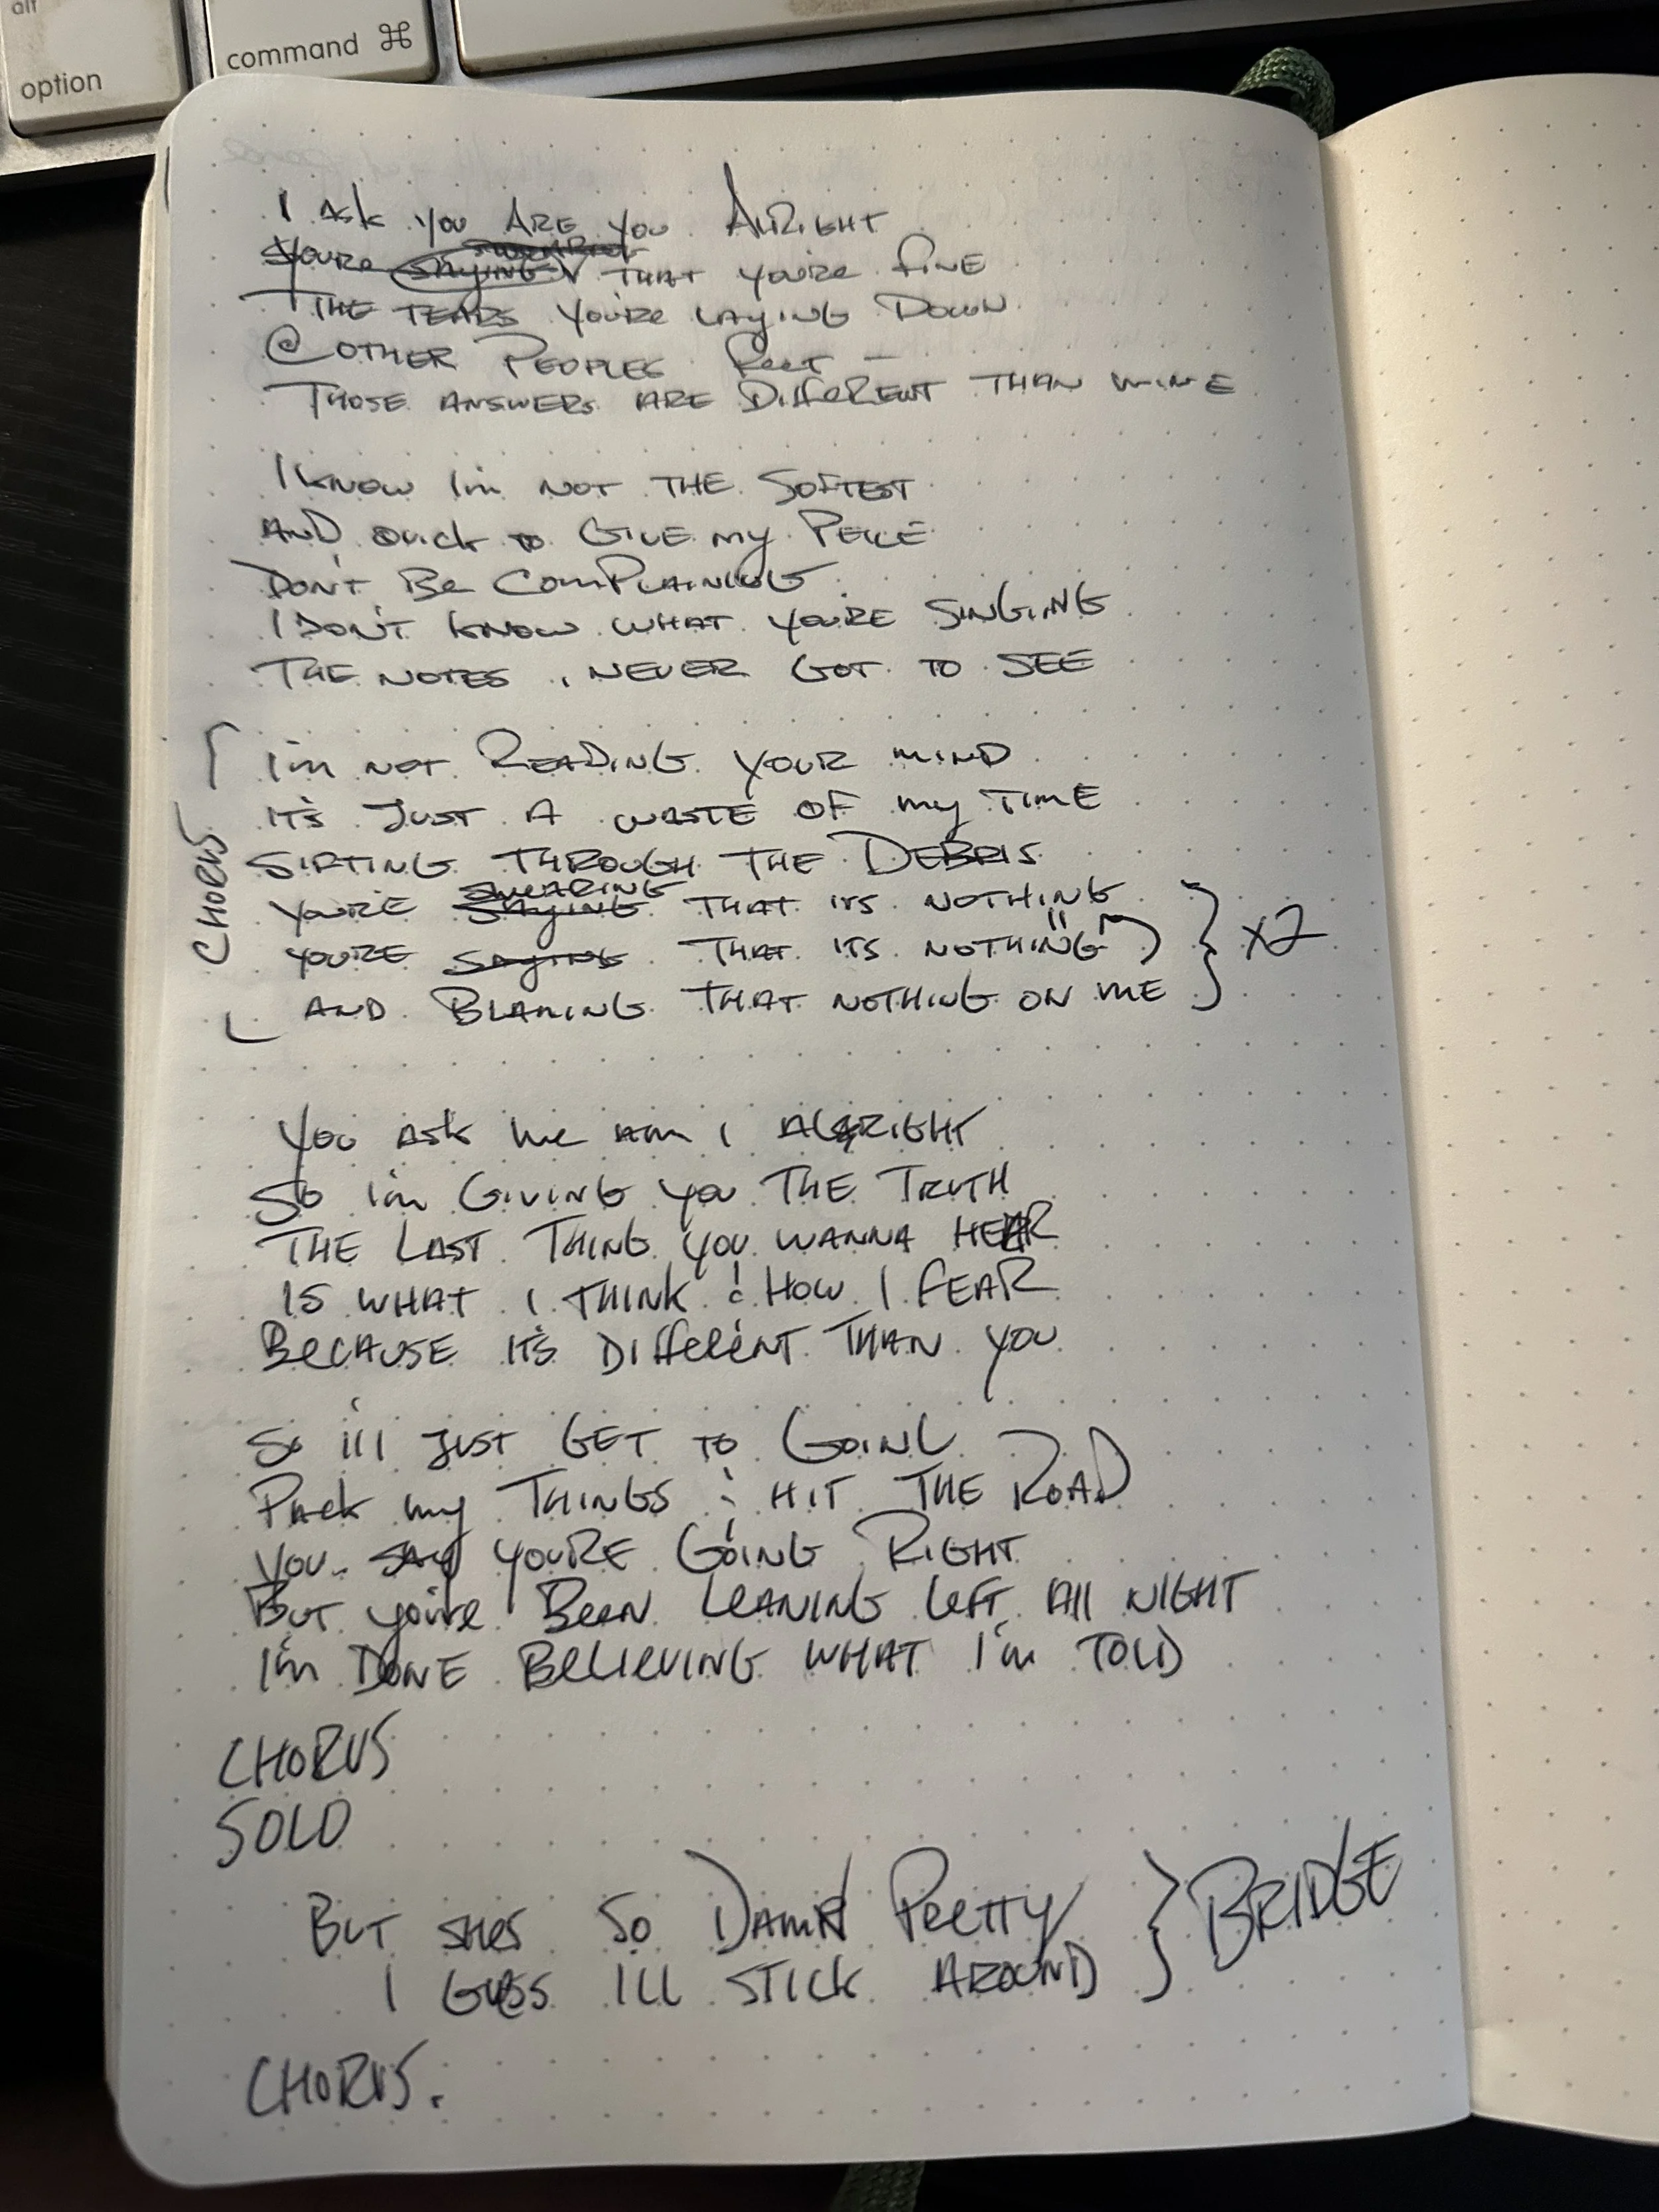 alt
option
command ⌘
I ASK YOU ARE YOU ALRIGHT
SWEARING
YOU'RE SAYING THAT YOU'RE FINE
THE TEARS YOU'RE LAYING DOWN
@ OTHER PEOPLES FEET –
THOSE ANSWERS ARE DIFFERENT THAN MINE
I KNOW I'm NOT THE SOFTEST
AND QUICK TO GIVE MY PEICE
DON'T BE COMPLAINING
I DON'T KNOW WHAT YOU'RE SINGING
THE NOTES I NEVER GOT TO SEE
CHORUS
I'm NOT READING YOUR MIND
IT'S JUST A WASTE OF MY TIME
SIFTING THROUGH THE DEBRIS
SWEARING
YOU'RE SAYING THAT ITS NOTHING
YOU'RE SAYING THAT ITS NOTHING
AND BLAMING THAT NOTHING ON ME
x2
YOU ASK ME AM I ALRIGHT
SO I'm GIVING YOU THE TRUTH
THE LAST THING YOU WANNA HEAR
IS WHAT I THINK & HOW I FEAR
BECAUSE IT'S DIFFERENT THAN YOU
SO I'll JUST GET TO GOING
PACK MY THINGS & HIT THE ROAD
YOU SAY YOU'RE GOING RIGHT
BUT YOU'VE BEEN LEANING LEFT All NIGHT
I'm DONE BELIEVING WHAT I'm TOLD
CHORUS
SOLO
BUT SHES SO DAMN PRETTY
I GUESS ILL STICK AROUND
BRIDGE
CHORUS.